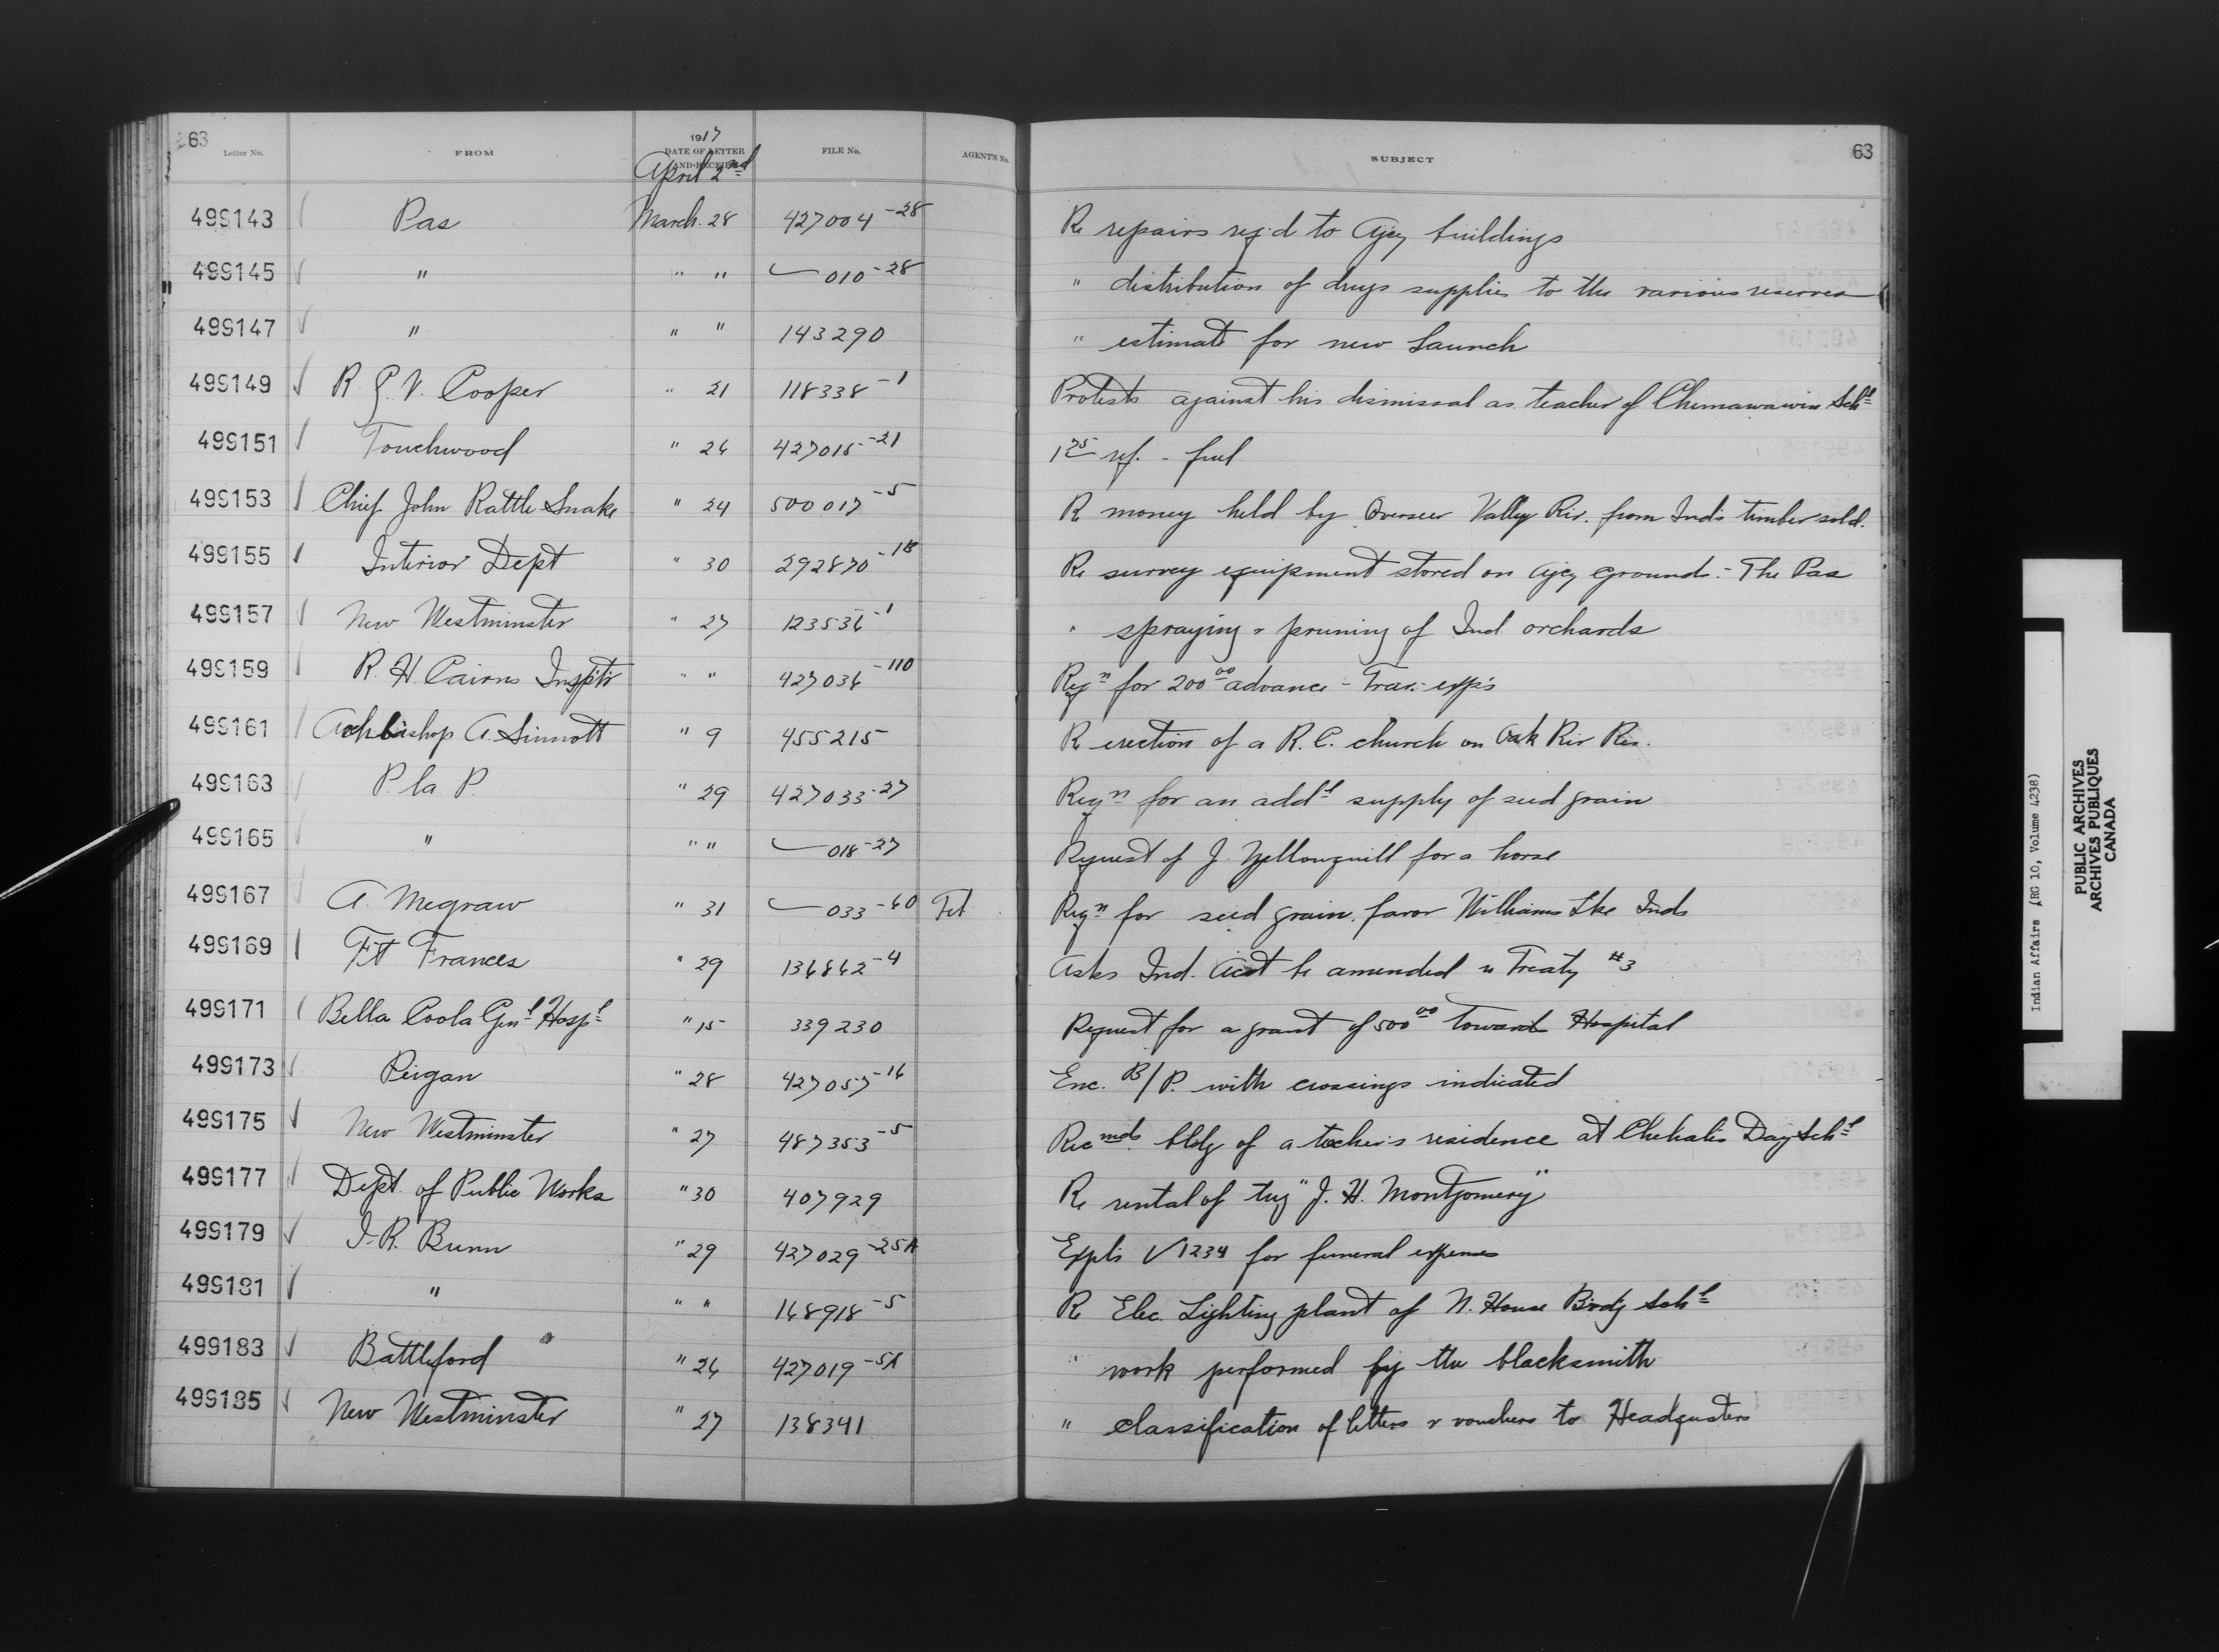 63 1917 63
Letter No. FROM DATE OF LETTER AND RECEIPT FILE No. AGENT'S No. SUBJECT
April 2nd
499143 Pas March 28 427004-28 Re repairs reqd to Agcy buildings
499145 " " " 010-28 " distribution of drugs supplies to the various reserves
499147 " " " 143290 " estimate for new launch
499149 R. J. V. Cooper " 21 118338-1 Protests against his dismissal as teacher of Chemawawin Schl
499151 Touchwood " 26 427015-21 175 ref. - fuel
499153 Chief John Rattle Snake " 24 500017-5 Re money held by Overseer Valley Riv. from Inds timber sold.
499155 Interior Dept " 30 292870-1B Re survey equipment stored on Agcy grounds - The Pas
499157 New Westminster " 27 123536-1 " spraying & pruning of Ind orchards
499159 R. H. Cairns Insptr " " 427036-110 Reqn for 200 00 advance - Trav. exps
499161 Archbishop A. Sinnott " 9 455215 Re erection of a R.C. church on Oak Riv Res.
499163 P. la P. " 29 427033-27 Reqn for an addl supply of seed grain
499165 " " " 018-27 Request of J. Yellowquill for a horse
499167 A. Megraw " 31 033-60 Reqn for seed grain favor Williams Lke Inds
499169 Ft Frances " 29 136862-4 Asks Ind. Act be amended re Treaty #3
499171 Bella Coola Genl Hospl " 15 339230 Request for a grant of 500 00 toward Hospital
499173 Peigan " 28 427057-16 Enc. B/P. with crossings indicated
499175 New Westminster " 27 487353-5 Recmds bldg of a teacher's residence at Chehalis Day Schl
499177 Dept. of Public Works " 30 407929 Re rental of tug "J. H. Montgomery"
499179 J. R. Bunn " 29 427029-25A Expls V 1234 for funeral expenses
499181 " " " 168918-5 Re Elec. Lighting plant of N. House Brdg Schl
499183 Battleford " 26 427019-5A " work performed by the blacksmith
499185 New Westminster " 27 138341 " classification of letters & vouchers to Headqusters
Indian Affairs (RG 10, Volume 4238)
PUBLIC ARCHIVES
ARCHIVES PUBLIQUES
CANADA